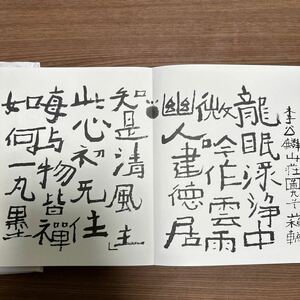 李公麟山莊圖
龍眠淥淨中
微吟作雲雨
幽人建德居
知是清風主
此心初无住
物皆禪
如何一丸墨